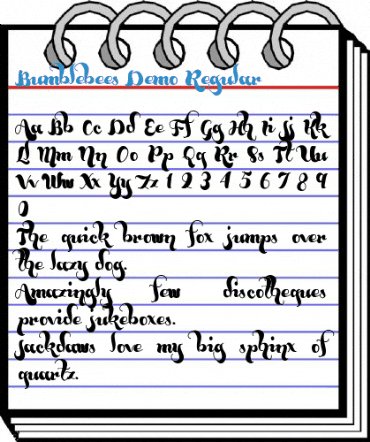 Bumblebees Demo Regular
Aa Bb Cc Dd Ee Ff Gg Hh Ii Jj Kk
Ll Mm Nn Oo Pp Qq Rr Ss Tt Uu
Vv Ww Xx Yy Zz 1 2 3 4 5 6 7 8 9
0
The quick brown fox jumps over
the lazy dog.
Amazingly few discotheques
provide jukeboxes.
Jackdaws love my big sphinx of
quartz.